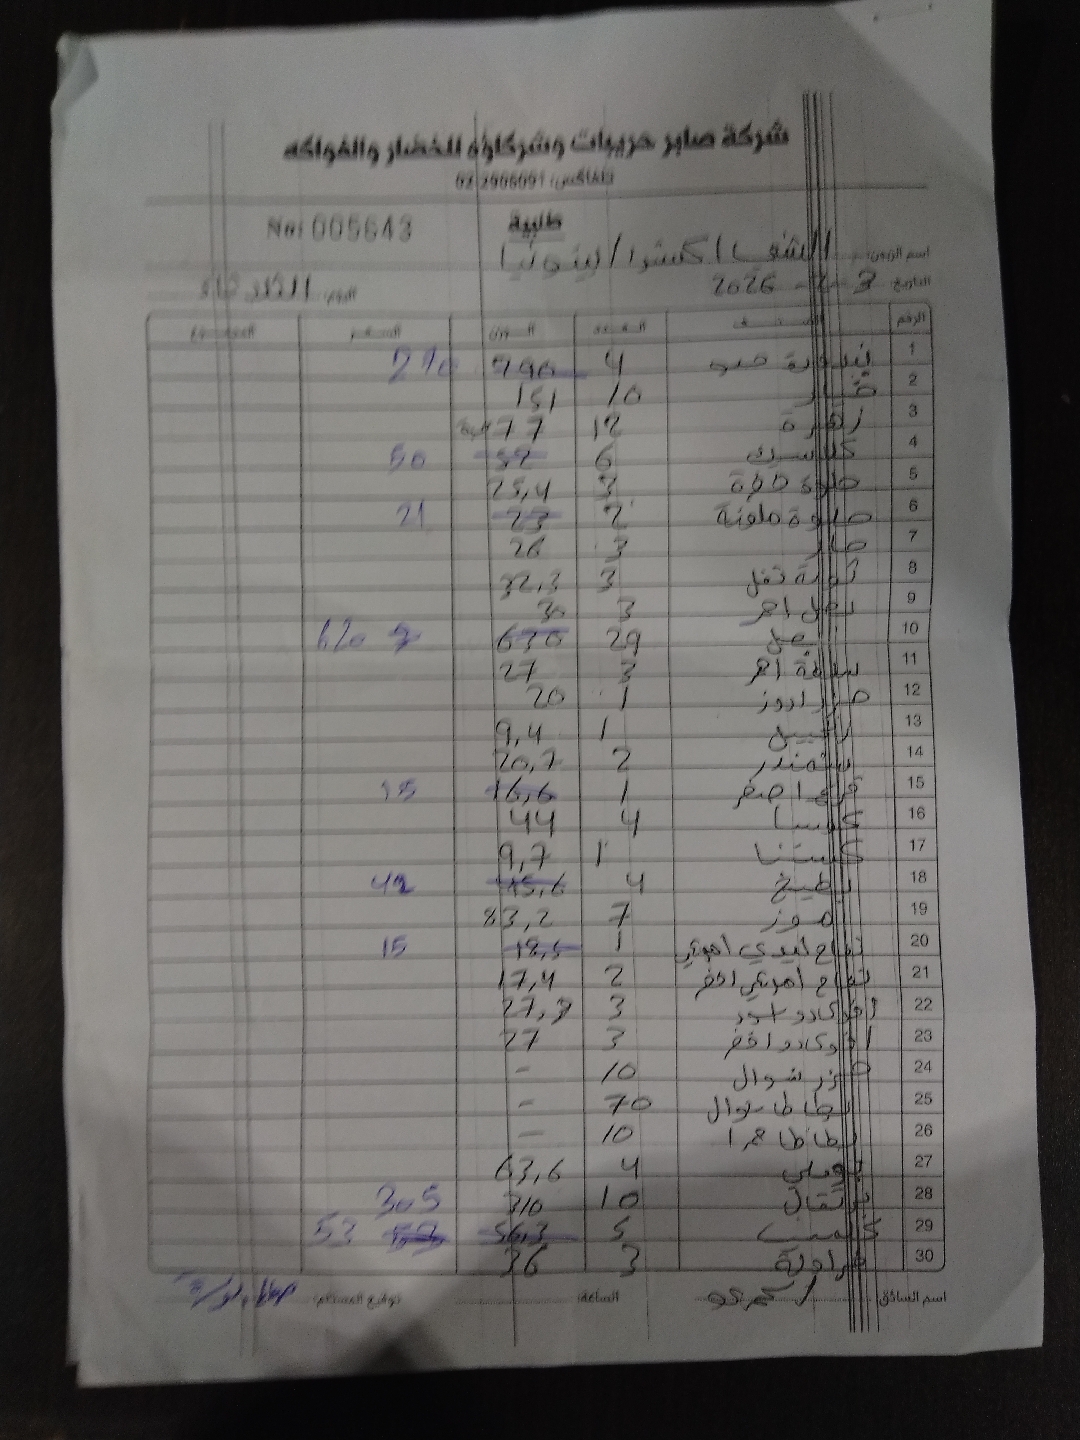 شركة صابر حريبات وشركاؤه للخضار والفواكه
تلفاكس: 02-2966091
طلبية
No: 005643
اسم الزبون: الشني اكسترا /
التاريخ: 3 - 2 - 2026 اليوم: الثلاثاء
الرقم الصنف العدد الوزن السعر المجموع
1 بندورة 4 290 210
2 خيار 10 151
3 زهرة 12 77
4 6 52 50
5 حلوة 3 25,4
6 حلوة ملونة 2 23 21
7 حار 3 26
8 3 32,3
9 بصل احمر 3 30
10 بصل 29 630 620
11 احمر 3 27
12 1 20
13 زنجبيل 1 9,4
14 شمندر 2 20,7
15 قرع اصفر 1 16,6 15
16 كوسا 4 44
17 كستنا 1 9,7
18 بطيخ 4 45,6 42
19 موز 7 83,2
20 تفاح ليدي 1 18,5 15
21 تفاح اخضر 2 17,4
22 افوكادو اسود 3 27,3
23 افوكادو اخضر 3 27
24 جزر شوال 10 -
25 بطاطا شوال 70 -
26 بطاطا حمرا 10 -
27 بوملي 4 63,6
28 برتقال 10 310 305
29 5 56,3 53
30 فراولة 3 36
اسم السائق: الساعة: توقيع المستلم: